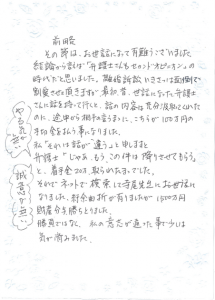 前略
その節は、お世話になって有難うございました。
結論から言えば"弁護士さんもセカンドオピニオン"の
時代だと思いました。離婚訴訟 いきさつは面倒で
割愛させて頂きますが最初、昔、世話になった弁護士
さんに話を持って行くと、話の内容は充分反映してくれた
のに、途中から相手の言うまゝに、こちらが150万円の
手切金を払う事になりました。
私"それは話が違う"と申しますと
弁護士"じゃあ、もう、この件は降りさせてもらう"
と、着手金20万取られたまゝでした。
それでネットで検索して寺尾先生にお世話に
なりました。料金面折が有りましたが1500万円
財産分与勝ちとりました。
勝負ではなく、私の意志が通った事で少しは
気が済みました。
やる気が無い
誠意が無い